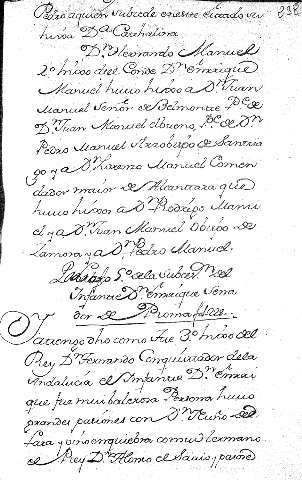 Pedro aquien subcede en este estado su
hixa D.ª Cathalina
D.n Hernando Manuel
2.º hixo del Conde D.n Enrrique
Manuel huuo hixos a D.n Juan
Manuel Señor de Belmonte P.e de
D.n Juan Manuel el bueno, P.e de D.n
Pedro Manuel Arzobispo de Santia
go y a D.n Lorenzo Manuel Comen
dador maior de Alcantara que
huuo hixos a D.n Rodrigo Manu
el y a D.n Juan Manuel Obispo de
Zamora y a D.n Pedro Manuel.
5.º de la Subces.on del
Infante D.n Enrrique Sena
dor de Roma
Ia tengo dho como fue 3.º hixo del
Rey D.n Fernando Conquistador de la
Andalucia el Infante D.n Enrri
que fue mui balerosa Persona huuo
grandes pasiones con D.n Nuño de
Lara y vino en quiebra con su hermano
el Rey D.n Alonso el Sauio y